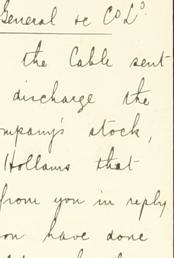 General &c Co Ld.
the Cable sent
discharge the
mpany's stock,
Hollams that
from you in reply
on have done